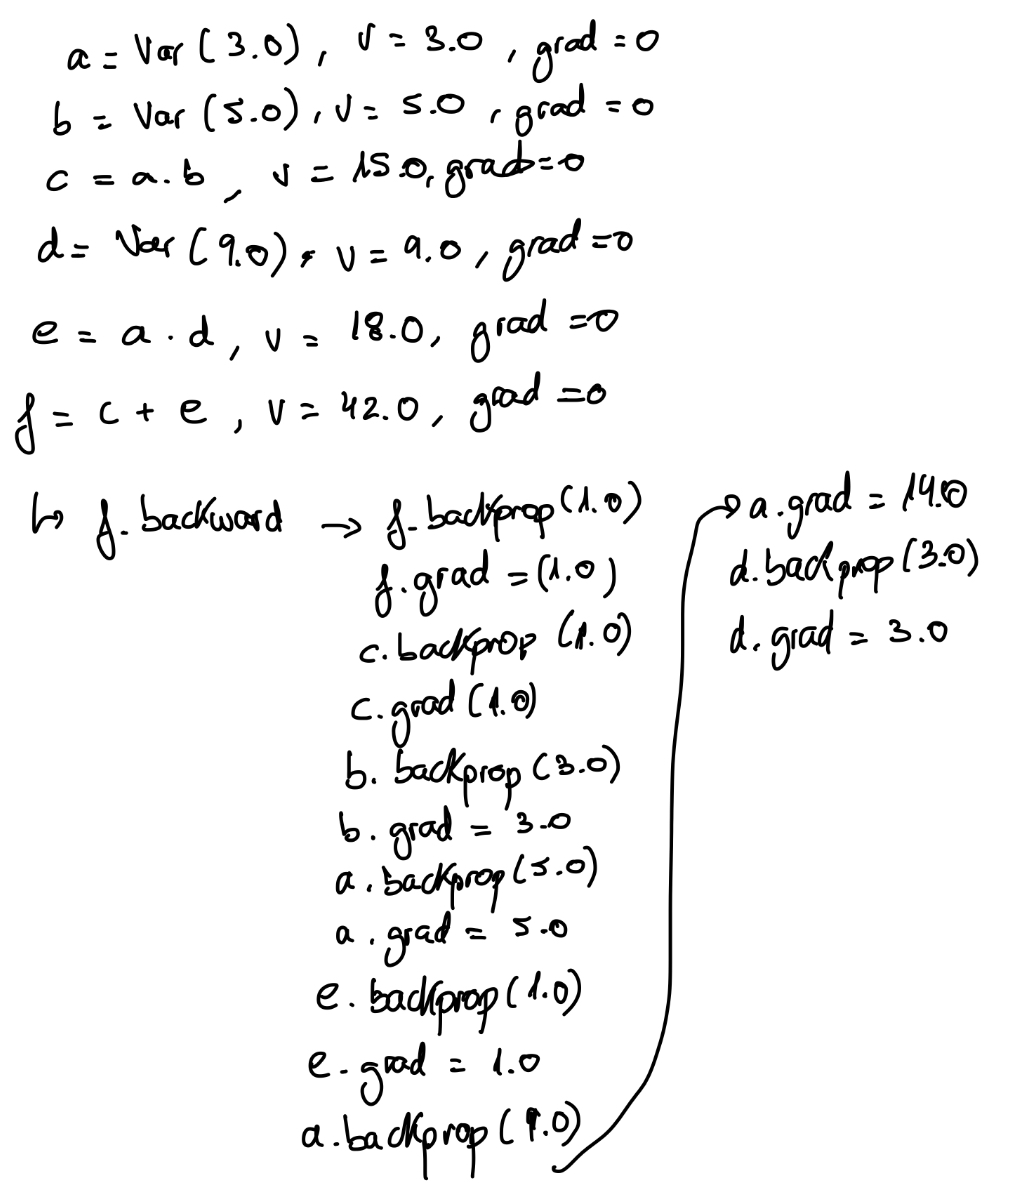 a = Var (3.0), v = 3.0, grad = 0
b = Var (5.0), v = 5.0, grad = 0
c = a.b, v = 15.0, grad=0
d = Var (9.0), v = 9.0, grad =0
e = a . d, v = 18.0, grad =0
f = c + e, v = 42.0, grad =0
↳ f.backward → f.backprop(1.0)
f.grad = (1.0)
c.backprop (1.0)
c.grad (1.0)
b. backprop (3.0)
b. grad = 3.0
a. backprop (5.0)
a. grad = 5.0
e. backprop (1.0)
e. grad = 1.0
a.backprop (9.0)
→ a.grad = 14.0
d.backprop (3.0)
d. grad = 3.0